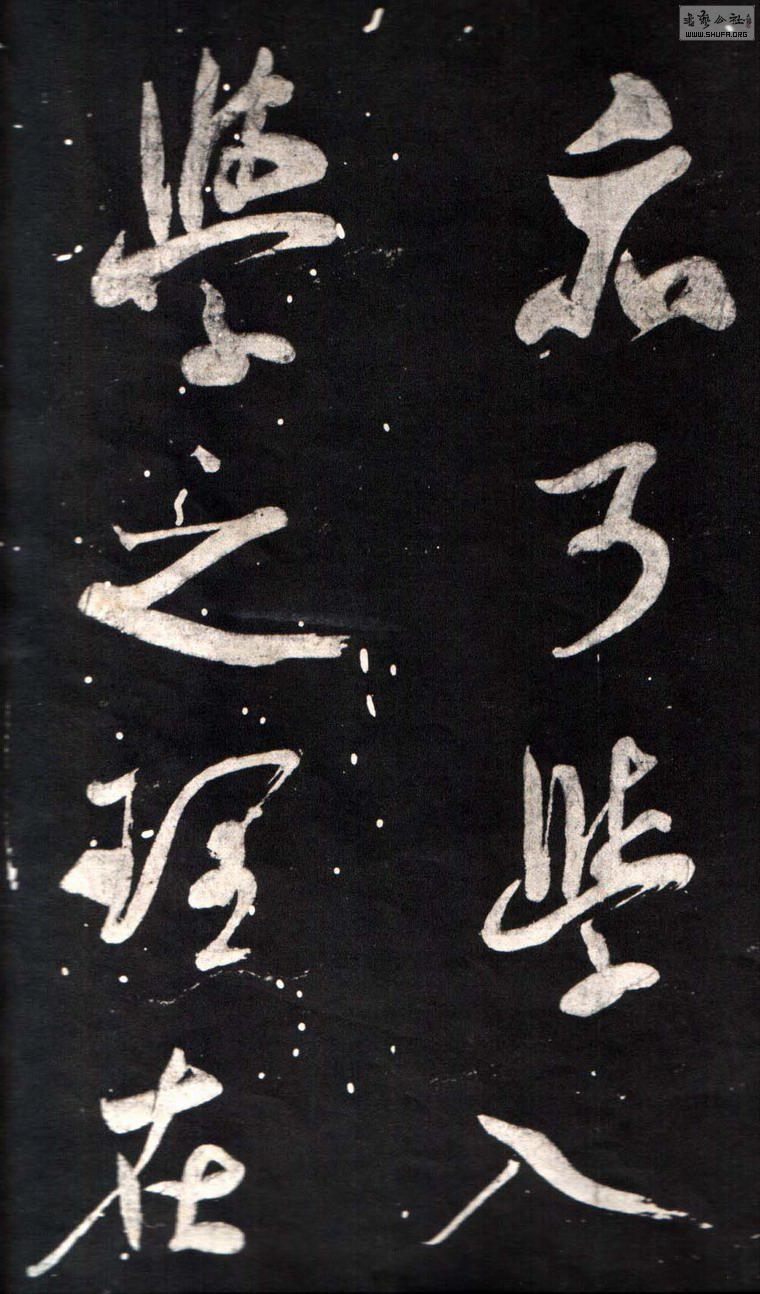 書藝公社
WWW.SHUFA.ORG
學入
學之理在